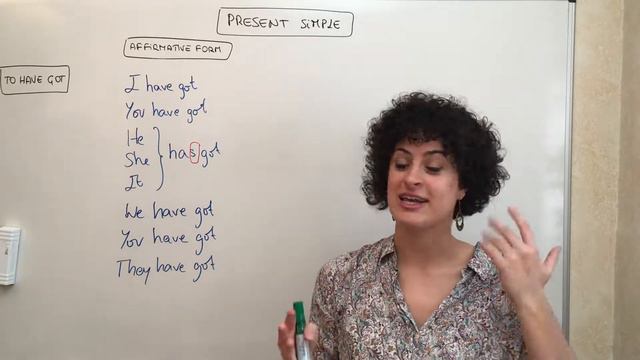 PRESENT SiMPLE
AFFiRMATiVE FORM
TO HAVE GOT
I have got
You have got
He
She
It
has got
We have got
You have got
They have got